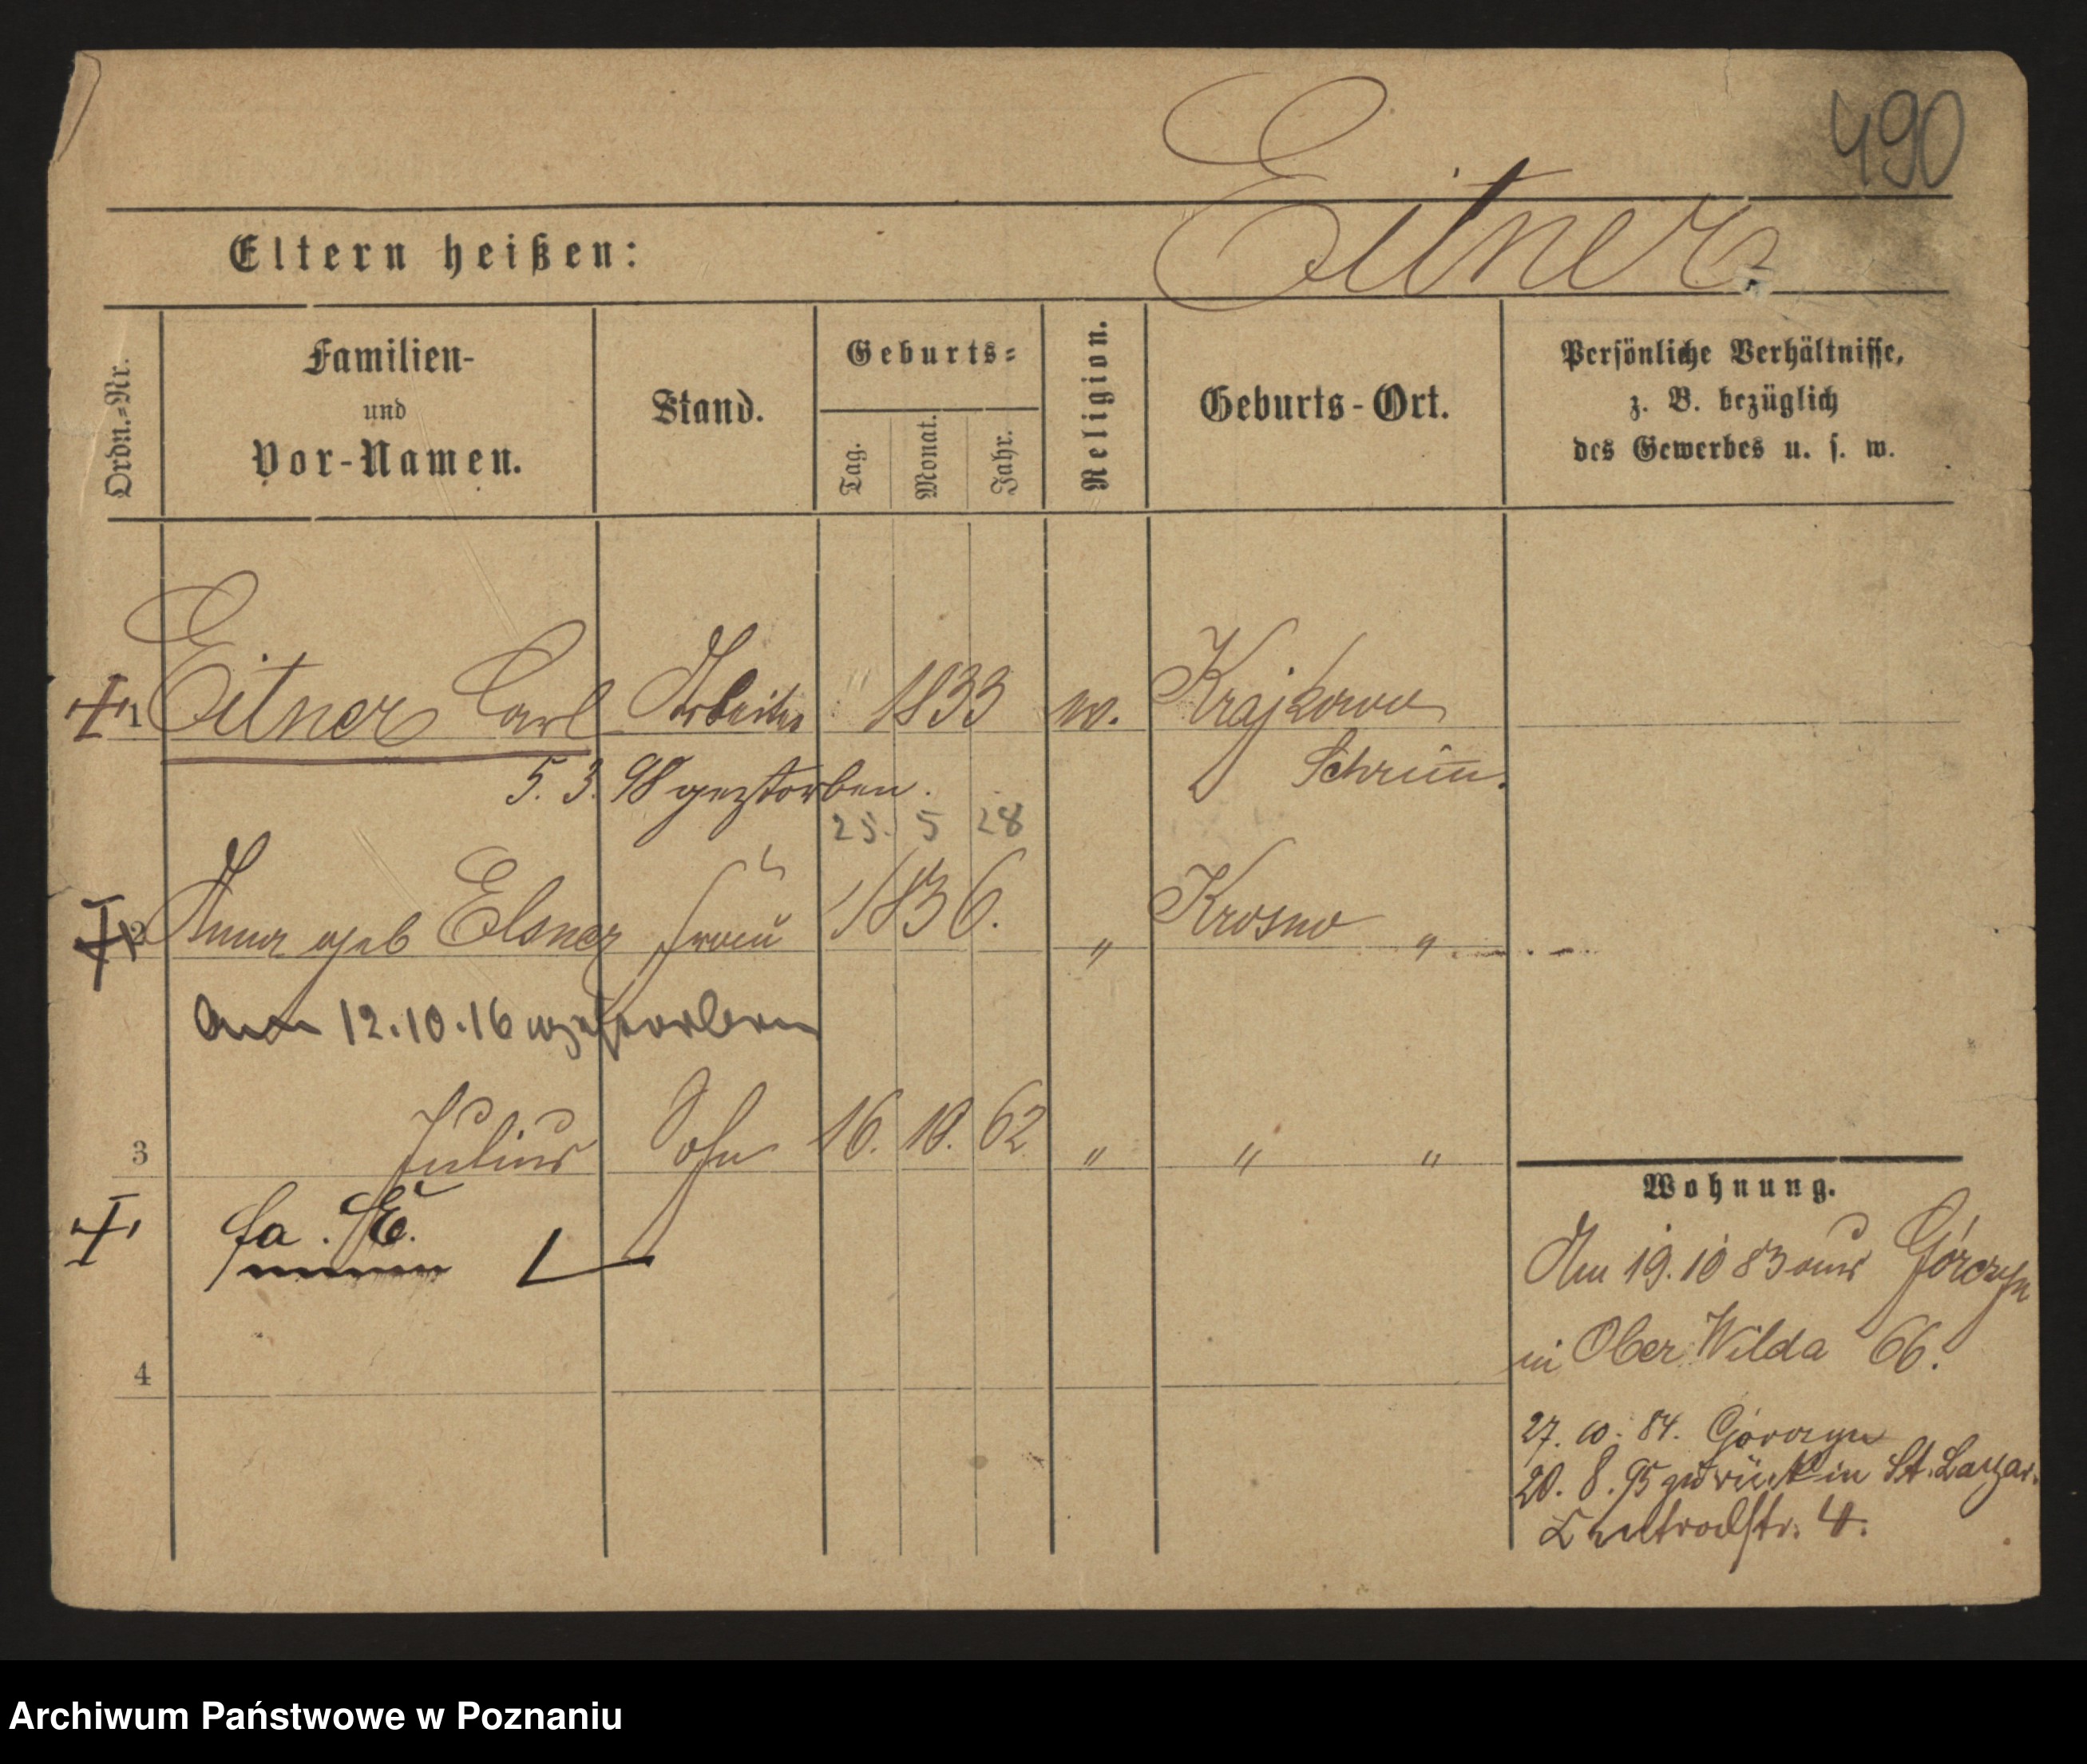 490
Eitner
Eltern heißen:
Ordn.-Nr.
Familien-
und
Vor-Namen.
Stand.
Geburts-
Tag.
Monat.
Jahr.
Religion.
Geburts-Ort.
Persönliche Verhältnisse,
z. B. bezüglich
des Gewerbes u. s. w.
1 Eitner Carl Arbeiter 1833 Krajkowo
Schrim.
5. 3. 98 gestorben.
25. 5 28
2 Anna geb Elsner Frau 1836. " Krosno "
am 12.10.16 gestorben
3 Julius Sohn 16. 10. 62 " " "
fa. E.
4
Wohnung.
Am 19. 10 83 aus Górczyn
in Ober Wilda 66.
27. 10. 84. Górczyn
20. 8. 95 zurück in St. Lazar.
4.
Archiwum Państwowe w Poznaniu